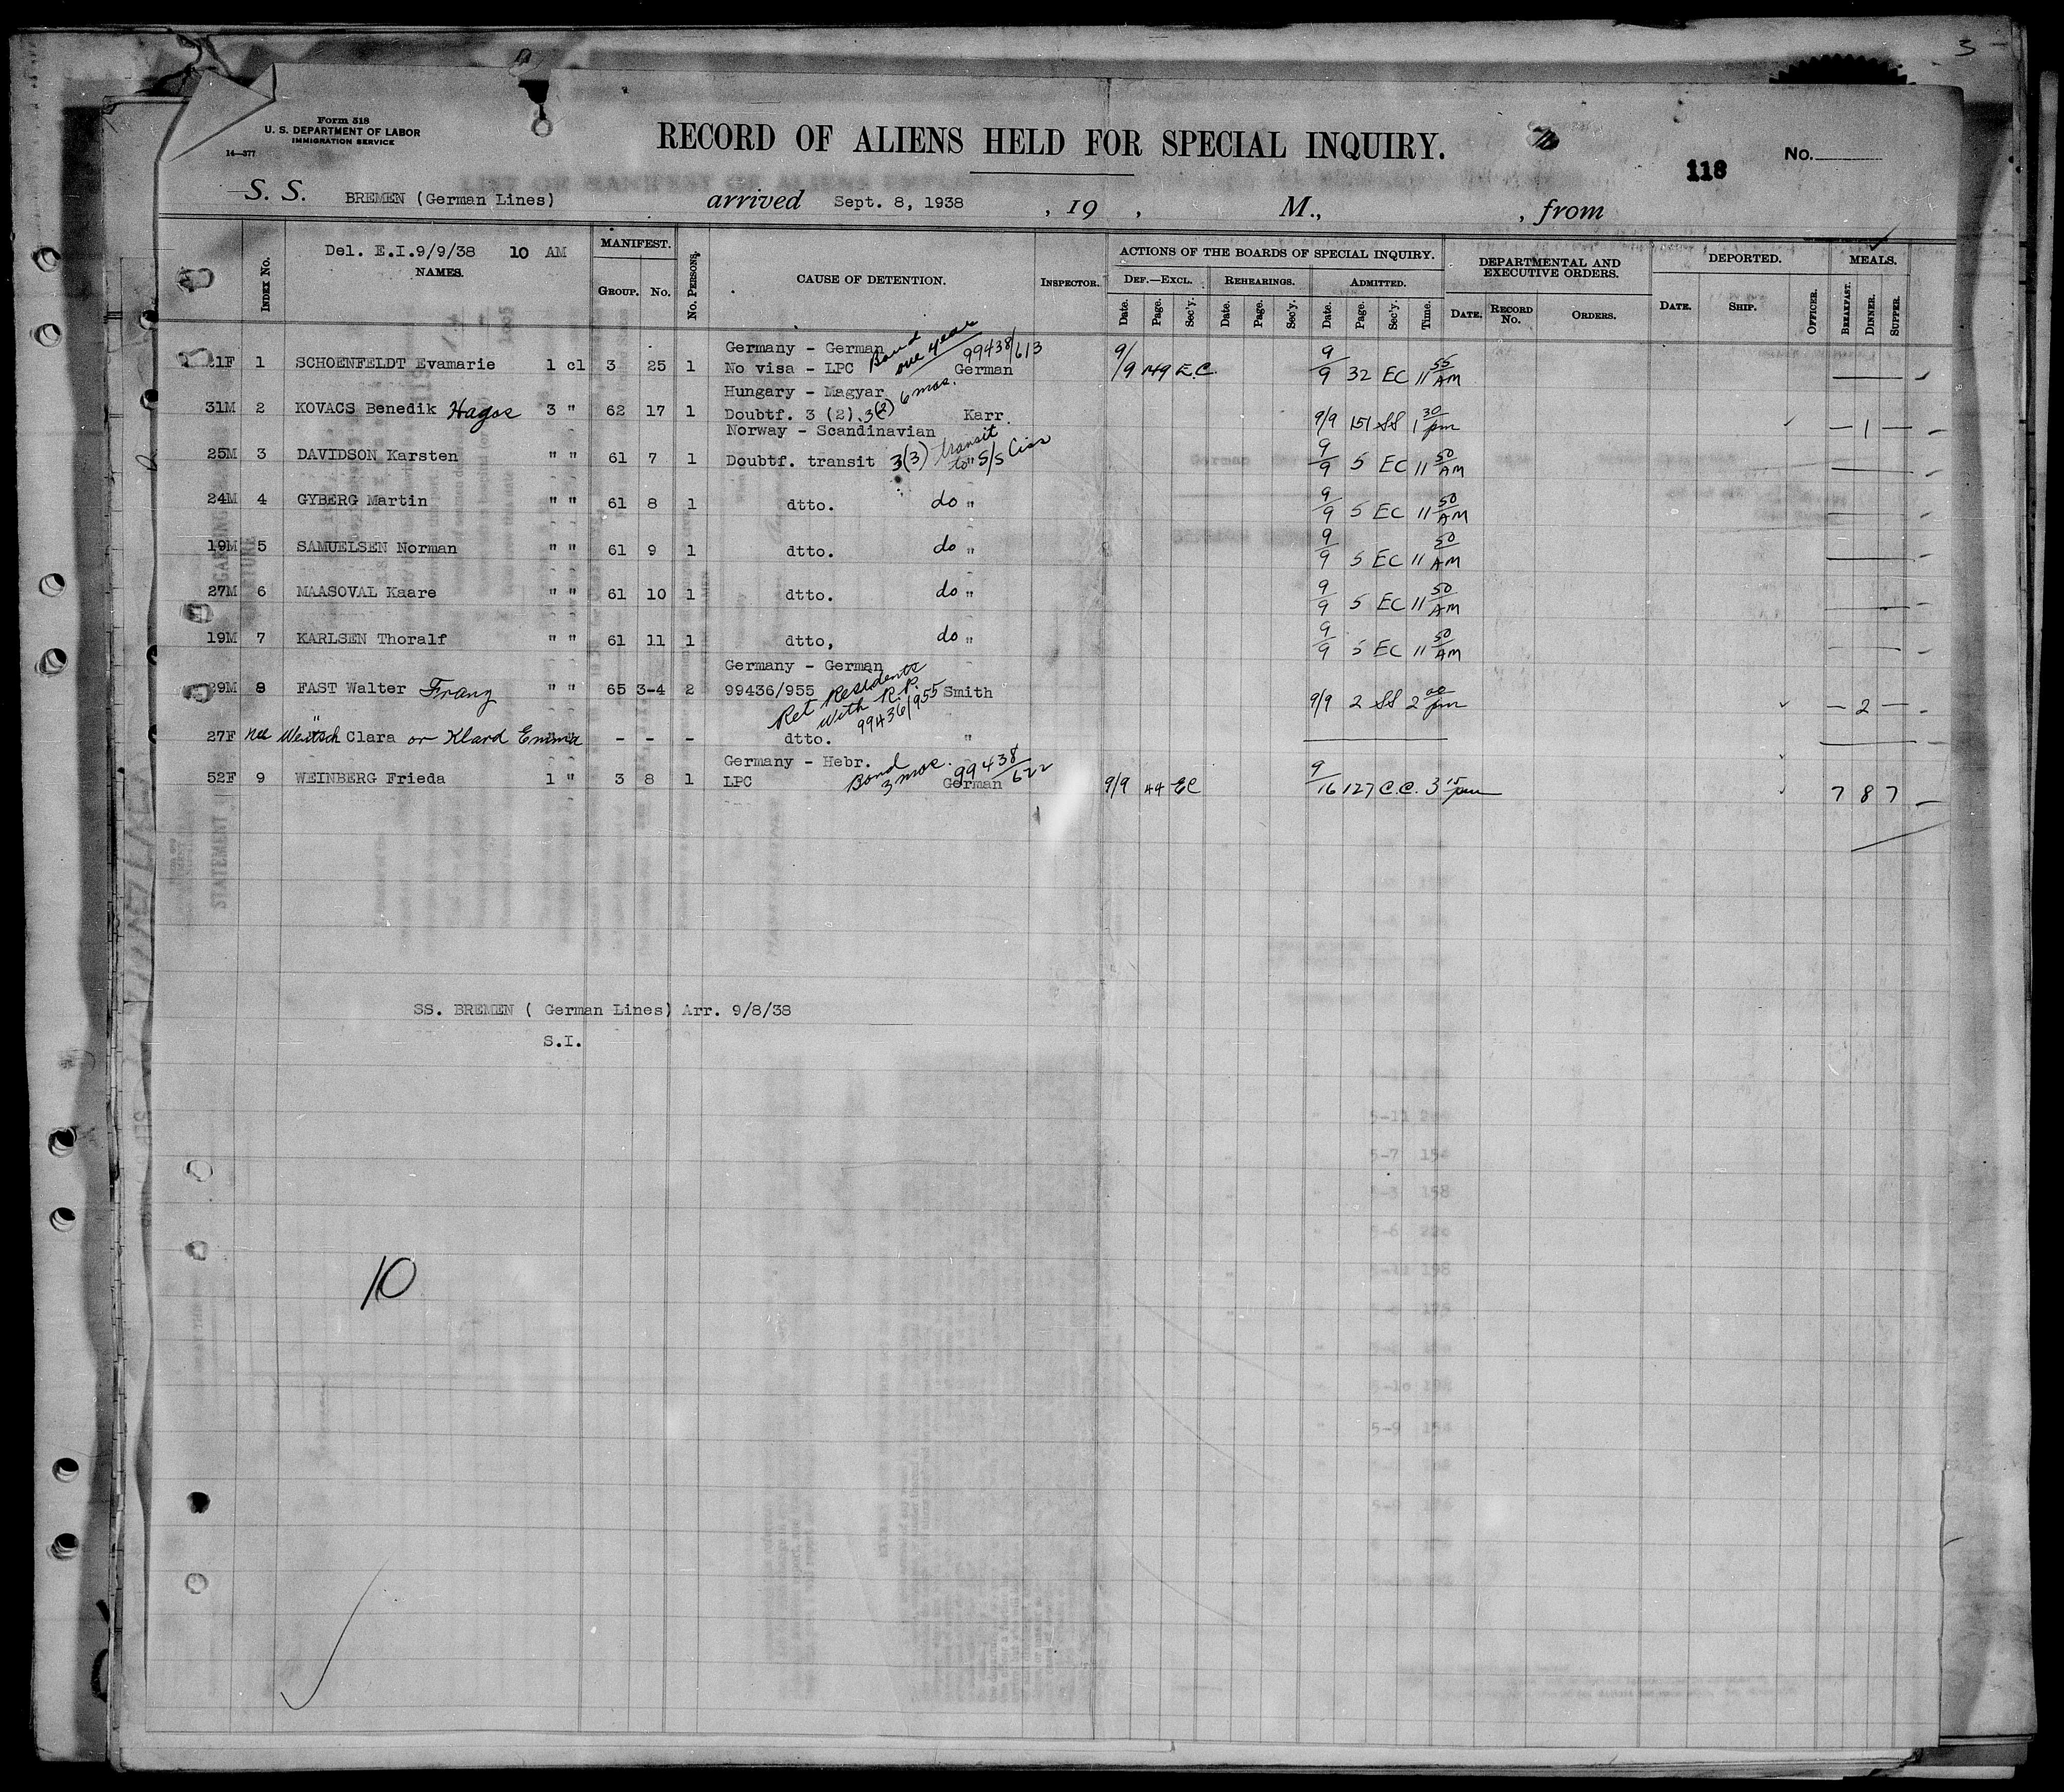 3
Form 518
U. S. DEPARTMENT OF LABOR
IMMIGRATION SERVICE
14—377
RECORD OF ALIENS HELD FOR SPECIAL INQUIRY.
118
No.
S. S. BREMEN (German Lines) arrived Sept. 8, 1938 , 19 , M., , from
Del. E.I.9/9/38 10 AM
INDEX NO. NAMES. MANIFEST. GROUP. NO. NO. PERSONS. CAUSE OF DETENTION. INSPECTOR. ACTIONS OF THE BOARDS OF SPECIAL INQUIRY. DEPARTMENTAL AND EXECUTIVE ORDERS. DEPORTED. MEALS.
DEF.—EXCL. REHEARINGS. ADMITTED.
Date. Page. Sec'y. Date. Page. Sec'y. Date. Page. Sec'y. Time. DATE. RECORD No. ORDERS. DATE. SHIP. OFFICER. BREAKFAST. DINNER. SUPPER.
Germany - German Bond one year 99438/613
21F 1 SCHOENFELDT Evamarie 1 cl 3 25 1 No visa - LPC German 9/9 149 E.C. 9/9 32 EC 11 55 AM
Hungary - Magyar 6 mos.
31M 2 KOVACS Benedik 3 " 62 17 1 Doubtf. 3 (2) 3(2) Karr 9/9 151 SS 1 30 pm — 1 —
Norway - Scandinavian transit
25M 3 DAVIDSON Karsten " " 61 7 1 Doubtf. transit 3(3) to " S/S 9/9 5 EC 11 50 AM
24M 4 GYBERG Martin " " 61 8 1 dtto. do " 9/9 5 EC 11 50 AM
19M 5 SAMUELSEN Norman " " 61 9 1 dtto. do " 9/9 5 EC 11 50 AM
27M 6 MAASOVAL Kaare " " 61 10 1 dtto. do " 9/9 5 EC 11 50 AM
19M 7 KARLSEN Thoralf " " 61 11 1 dtto, do " 9/9 5 EC 11 50 AM
Germany - German
29M 8 FAST Walter Franz " " 65 3-4 2 99436/955 Ret Residents with R.P. 99436/955 Smith 9/9 2 SS 2 00 pm — 2 —
27F nee Clara or Klara Emma " " - - - dtto. "
Germany - Hebr. Bond 3 mos. 99438/622
52F 9 WEINBERG Frieda 1 " 3 8 1 LPC German 9/9 44 EC 9/16 127 C.C. 3 15 pm 7 8 7
SS. BREMEN ( German Lines) Arr. 9/8/38
S.I.
10